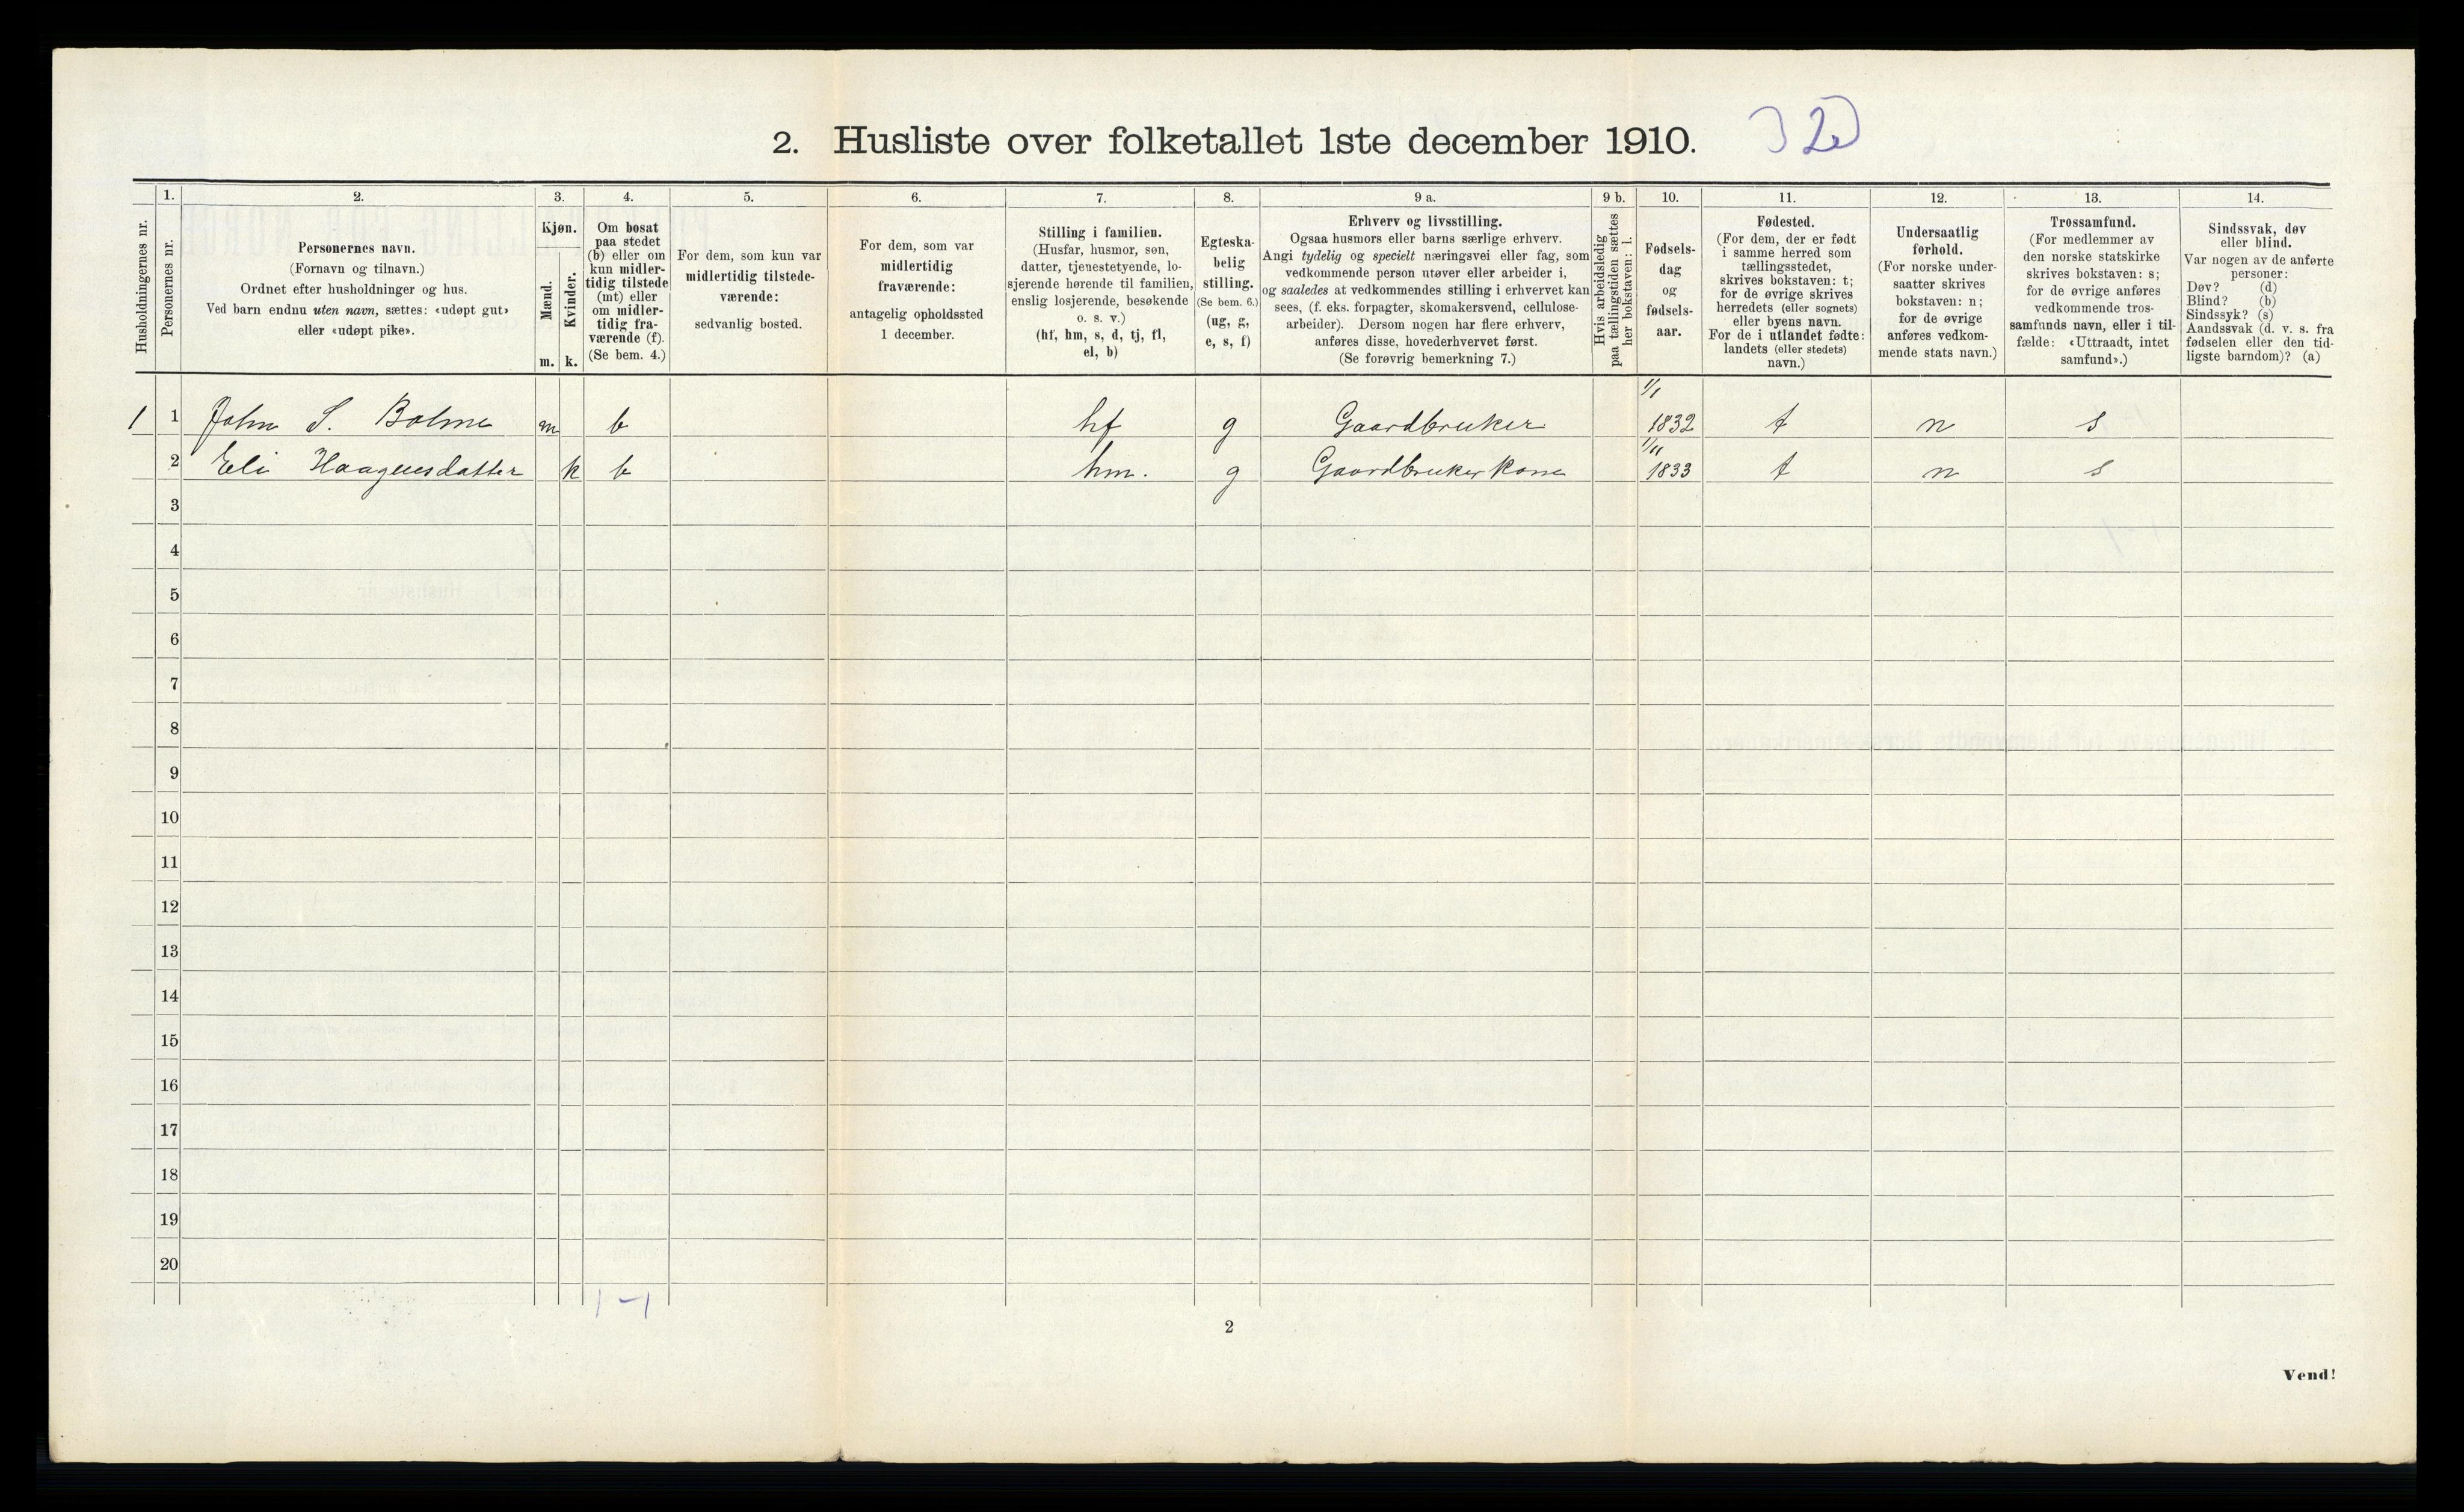 2. Husliste over folketallet 1ste december 1910.
Husholdningernes nr.
1.
Personernes nr.
2.
Personernes navn.
(Fornavn og tilnavn.)
Ordnet efter husholdninger og hus.
Ved barn endnu uten navn, sættes: «udøpt gut»
eller «udøpt pike».
3.
Kjøn.
Mænd.
Kvinder.
m. k.
4.
Om bosat
paa stedet
(b) eller om
kun midler-
tidig tilstede
(mt) eller
om midler-
tidig fra-
værende (f).
(Se bem. 4.)
5.
For dem, som kun var
midlertidig tilstede-
værende:
sedvanlig bosted.
6.
For dem, som var
midlertidig
fraværende:
antagelig opholdssted
1 december.
7.
Stilling i familien.
(Husfar, husmor, søn,
datter, tjenestetyende, lo-
sjerende hørende til familien,
enslig losjerende, besøkende
o. s. v.)
(hf, hm, s, d, tj, fl,
el, b)
8.
Egteska-
belig
stilling.
(Se bem. 6.)
(ug, g,
e, s, f)
9 a.
Erhverv og livsstilling.
Ogsaa husmors eller barns særlige erhverv.
Angi tydelig og specielt næringsvei eller fag, som
vedkommende person utøver eller arbeider i,
og saaledes at vedkommendes stilling i erhvervet kan
sees, (f. eks. forpagter, skomakersvend, cellulose-
arbeider). Dersom nogen har flere erhverv,
anføres disse, hovederhvervet først.
(Se forøvrig bemerkning 7.)
9 b.
Hvis arbeidsledig
paa tællingstiden sættes
her bokstaven: l.
10.
Fødsels-
dag
og
fødsels-
aar.
11.
Fødested.
(For dem, der er født
i samme herred som
tællingsstedet,
skrives bokstaven: t;
for de øvrige skrives
herredets (eller sognets)
eller byens navn.
For de i utlandet fødte:
landets (eller stedets)
navn.)
12.
Undersaatlig
forhold.
(For norske under-
saatter skrives
bokstaven: n;
for de øvrige
anføres vedkom-
mende stats navn.)
13.
Trossamfund.
(For medlemmer av
den norske statskirke
skrives bokstaven: s;
for de øvrige anføres
vedkommende tros-
samfunds navn, eller i til-
fælde: «Uttraadt, intet
samfund».)
14.
Sindssvak, døv
eller blind.
Var nogen av de anførte
personer:
Døv? (d)
Blind? (b)
Sindssyk? (s)
Aandssvak (d. v. s. fra
fødselen eller den tid-
ligste barndom)? (a)
1/1
1 1 John S. Bolme m b hf g Gaardbruker 1832 t n s
1/11
2 Eli Haagensdatter k b hm. g Gaardbruker kone 1833 t n s
3
4
5
6
7
8
9
10
11
12
13
14
15
16
17
18
19
20
1-1
2
Vend!